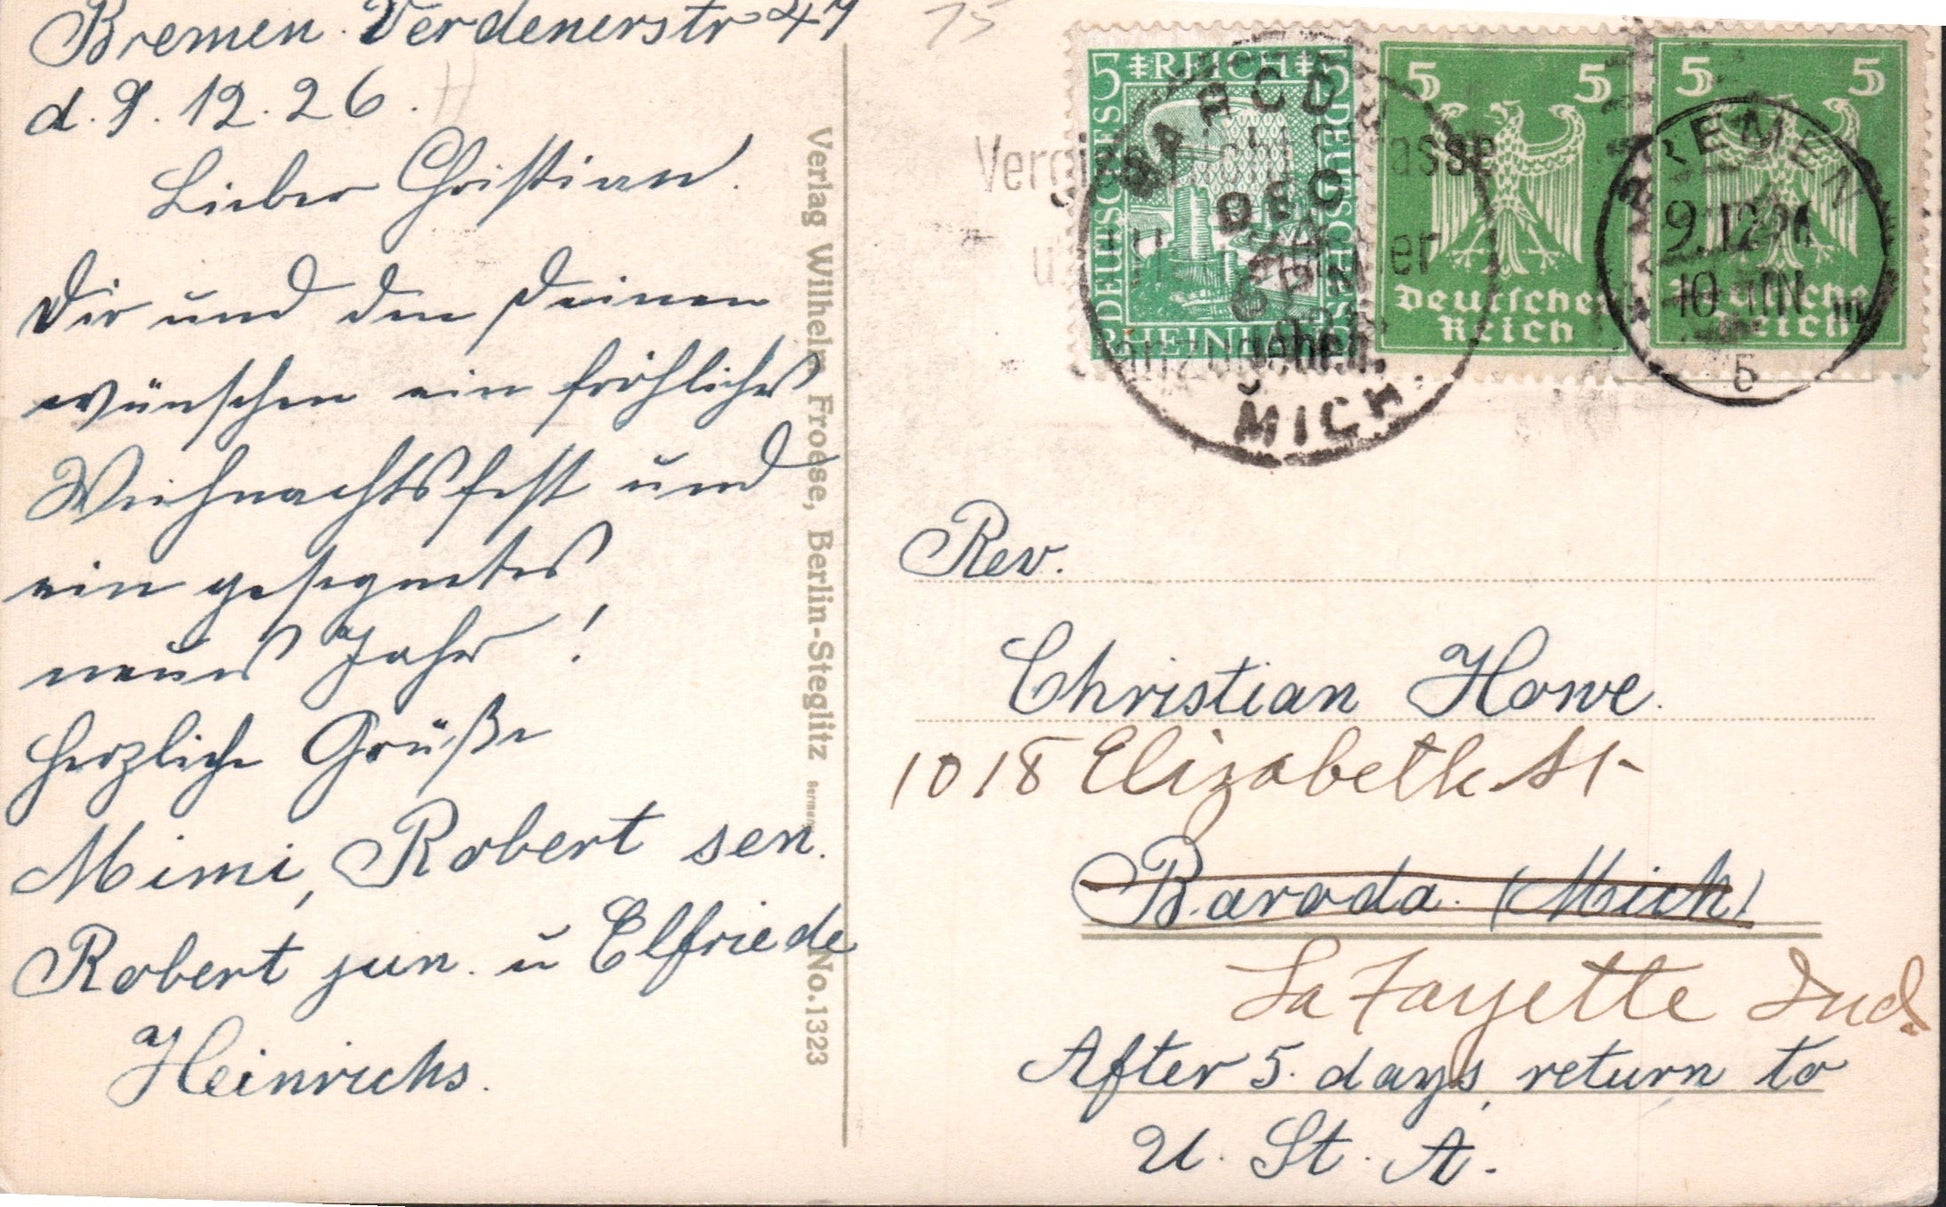 Bremen. Verdenerstr 47
d. 9. 12. 26.
Lieber Christian.
Dir und den Deinen
wünschen ein fröhliches
Weihnachtsfest und
ein gesegnetes
neues Jahr!
Herzliche Grüße
Mimi, Robert sen.
Robert jun. u Elfriede
Heinrichs.
Verlag Wilhelm Froese, Berlin-Steglitz Germany No. 1323
75
5 REICH 5
DEUTSCHES
DEUTSCHES
RHEINLAND
5 5
Deutsches
Reich
5 5
Deutsches
Reich
BARODA
DEC
6 PM
MICH.
anzugeben.
BREMEN
9.12.26
10-11 N
5
Rev.
Christian Howe.
1018 Elizabeth St
Baroda. (Mich)
LaFayette Ind.
After 5. days, return to
U. St. A.